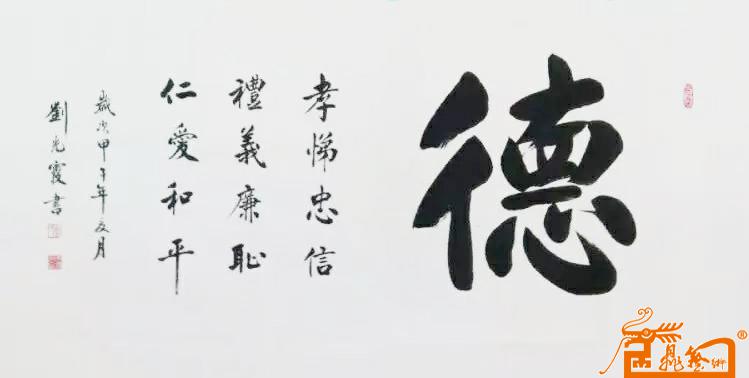 德
孝悌忠信
禮義廉恥
仁愛和平
歲次甲午年夏月
劉光霞書